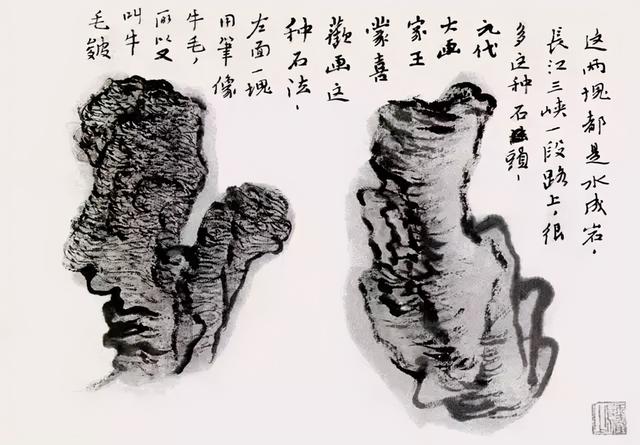 这两塊都是水成岩，
長江三峡一段路上，很
多这种石頭，
元代
大画
家王
蒙喜
歡画这
种石法，
左面一塊
用筆像
牛毛，
所以又
叫牛
毛皴